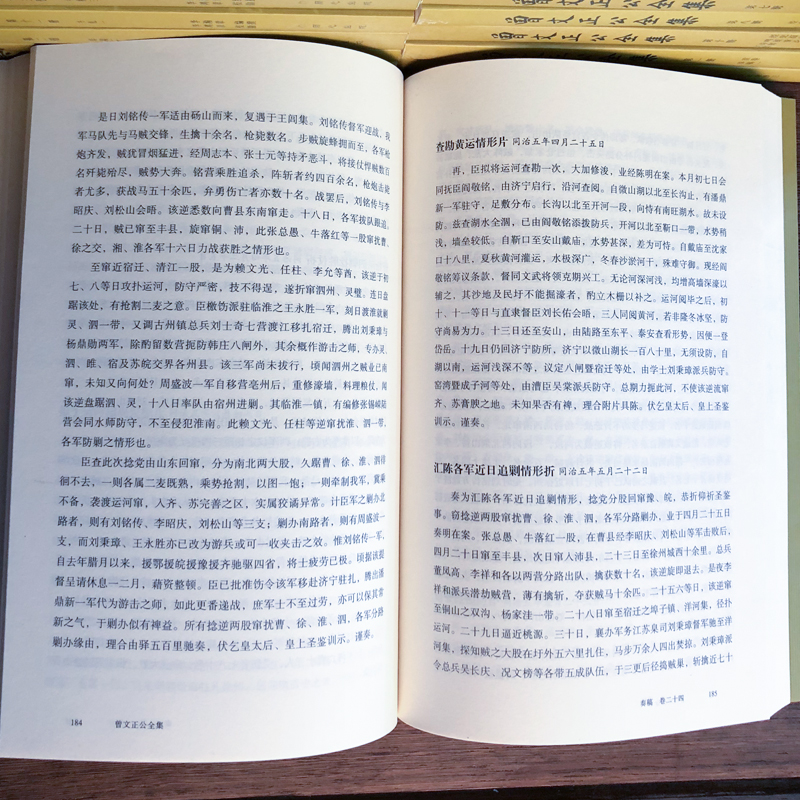 曾文正公全集
是日刘铭传一军适由砀山而来，复遇于王闾集。刘铭传督军迎战，我
军马队先与马贼交锋，生擒十余名，枪毙数名。步贼旋蜂拥而至，各军枪
炮齐发，贼犹冒烟猛进，经周志本、张士元等持矛恶斗，将接仗悍贼数百
名歼毙殆尽，贼势大奔。铭营乘胜追杀，阵斩者约四百余名，枪炮击毙
者尤多，获战马五十余匹，弁勇伤亡者亦数十名。战罢后，刘铭传与李
昭庆、刘松山会晤。该逆悉数向曹县东南窜走。十八日，各军拔队跟追，
二十日，贼已窜至丰县，旋窜铜、沛。此张总愚、牛落红等一股窜扰曹、
徐之交，湘、淮各军十六日力战获胜之情形也。
至窜近宿迁、清江一股，是为赖文光、任柱、李允等酋，该逆于初
七、八等日攻扑运河，防守严密，技不得逞，遂折窜泗州、灵璧。连日盘
踞该处，有抢割二麦之意。臣檄饬派驻临淮之王永胜一军，刻日渡淮就剿
灵、泗一带，又调古州镇总兵刘士奇七营渡江移扎宿迁，腾出刘秉璋与
杨鼎勋两军，除酌留数营扼防韩庄八闸外，其余概作游击之师，专办灵、
泗、睢、宿及苏皖交界各州县。该三军尚未拔行，顷闻泗州之贼业已南
窜，未知又向何处？周盛波一军自移营亳州后，重修濠墙，料理粮仗，闻
该逆盘踞泗、灵，十八日率队由宿州进剿。其临淮一镇，有编修张锡嵘陆
营会同水师防守，不至侵犯淮南。此赖文光、任柱等逆窜扰淮、泗一带，
各军防剿之情形也。
臣查此次捻党由山东回窜，分为南北两大股，久踞曹、徐、淮、泗徘
徊不去，一则各属二麦既熟，乘势抢割，以图一饱；一则牵制我军，冀乘
不备，袭渡运河窜，入齐、苏完善之区，实属狡谲异常。计臣军之剿办北
路者，则有刘铭传、李昭庆、刘松山等三支；剿办南路者，则有周盛波一
支，而刘秉璋、王永胜亦已改为游兵或可一收夹击之效。惟刘铭传一军，
自去年腊月以来，援鄂援皖援豫援齐驰驱四省，将士疲劳已极。顷据该提
督呈请休息一二月，藉资整顿。臣已批准饬令该军移赴济宁驻扎，腾出潘
鼎新一军代为游击之师，如此更番递战，庶军士不至过劳，亦可以保其常
新之气，于剿办似有裨益。所有捻逆两股窜扰曹、徐、淮、泗，各军分路
剿办缘由，理合由驿五百里驰奏，伏乞皇太后、皇上圣鉴训示。谨奏。
184　曾文正公全集
查勘黄运情形片　同治五年四月二十五日
再，臣拟将运河查勘一次，大加修浚，业经陈明在案。本月初七日会
同抚臣阎敬铭，由济宁启行，沿河查阅。自微山湖以北至长沟止，有潘鼎
新一军驻守，足敷分布。长沟以北至开河一段，向恃有南旺湖水。故未设
防。兹查湖水全涸，已由阎敬铭添拨防兵，开河以北至靳口一带，水势稍
浅，墙垒较低。自靳口至安山戴庙，水势甚深，差为可恃。自戴庙至沈家
口十八里，夏秋黄河灌运，水极深广，冬春沙淤河干，殊难守御。现经阎
敬铭筹议条款，督同文武将领克期兴工。无论河深河浅，均增高墙深濠以
辅之，其沙地及民圩不能掘濠者，酌立木栅以补之。运河阅毕之后，初
十、十一等日与直隶督臣刘长佑会晤，三人同阅黄河，若非隆冬冰坚，防
守尚易为力。十三日还至安山，由陆路至东平、泰安查看形势，因便一登
岱岳。十九日仍回济宁防所，济宁以微山湖长一百八十里，无须设防，自
湖以南，运河浅深不等，议定八闸暨宿迁等处，由学士刘秉璋派兵防守。
窑湾暨成子河等处，由漕臣吴棠派兵防守。总期力扼此河，不使该逆流窜
齐、苏膏腴之地。未知果否有裨，理合附片具陈。伏乞皇太后、皇上圣鉴
训示。谨奏。
汇陈各军近日追剿情形折　同治五年五月二十二日
奏为汇陈各军近日追剿情形，捻党分股回窜豫、皖，恭折仰祈圣鉴
事。窃捻逆两股窜扰曹、徐、淮、泗，各军分路剿办，业于四月二十五日
奏明在案。张总愚、牛落红一股，在曹县经李昭庆、刘松山等军击败后，
四月二十日窜至丰县，次日窜入沛县，二十三日至徐州城西十余里。总兵
董凤高、李祥和各以两营分路出队，擒获数十名，该逆旋即退去。是夜李
祥和派兵潜劫贼营，薄有擒斩，夺获贼马十余匹。二十五六等日，该逆窜
至铜山之双沟、杨家洼一带。二十八日窜至宿迁之埠子镇、洋河集，径扑
运河。二十九日逼近桃源。三十日，襄办军务江苏臬司刘秉璋督军驰至洋
河集，探知贼之大股在圩外五六里扎住，马步万余人四出焚掠。刘秉璋派
令总兵吴长庆、况文榜等各带五成队伍，于三更后径捣贼巢，斩擒近七十
奏稿　卷二十四　185